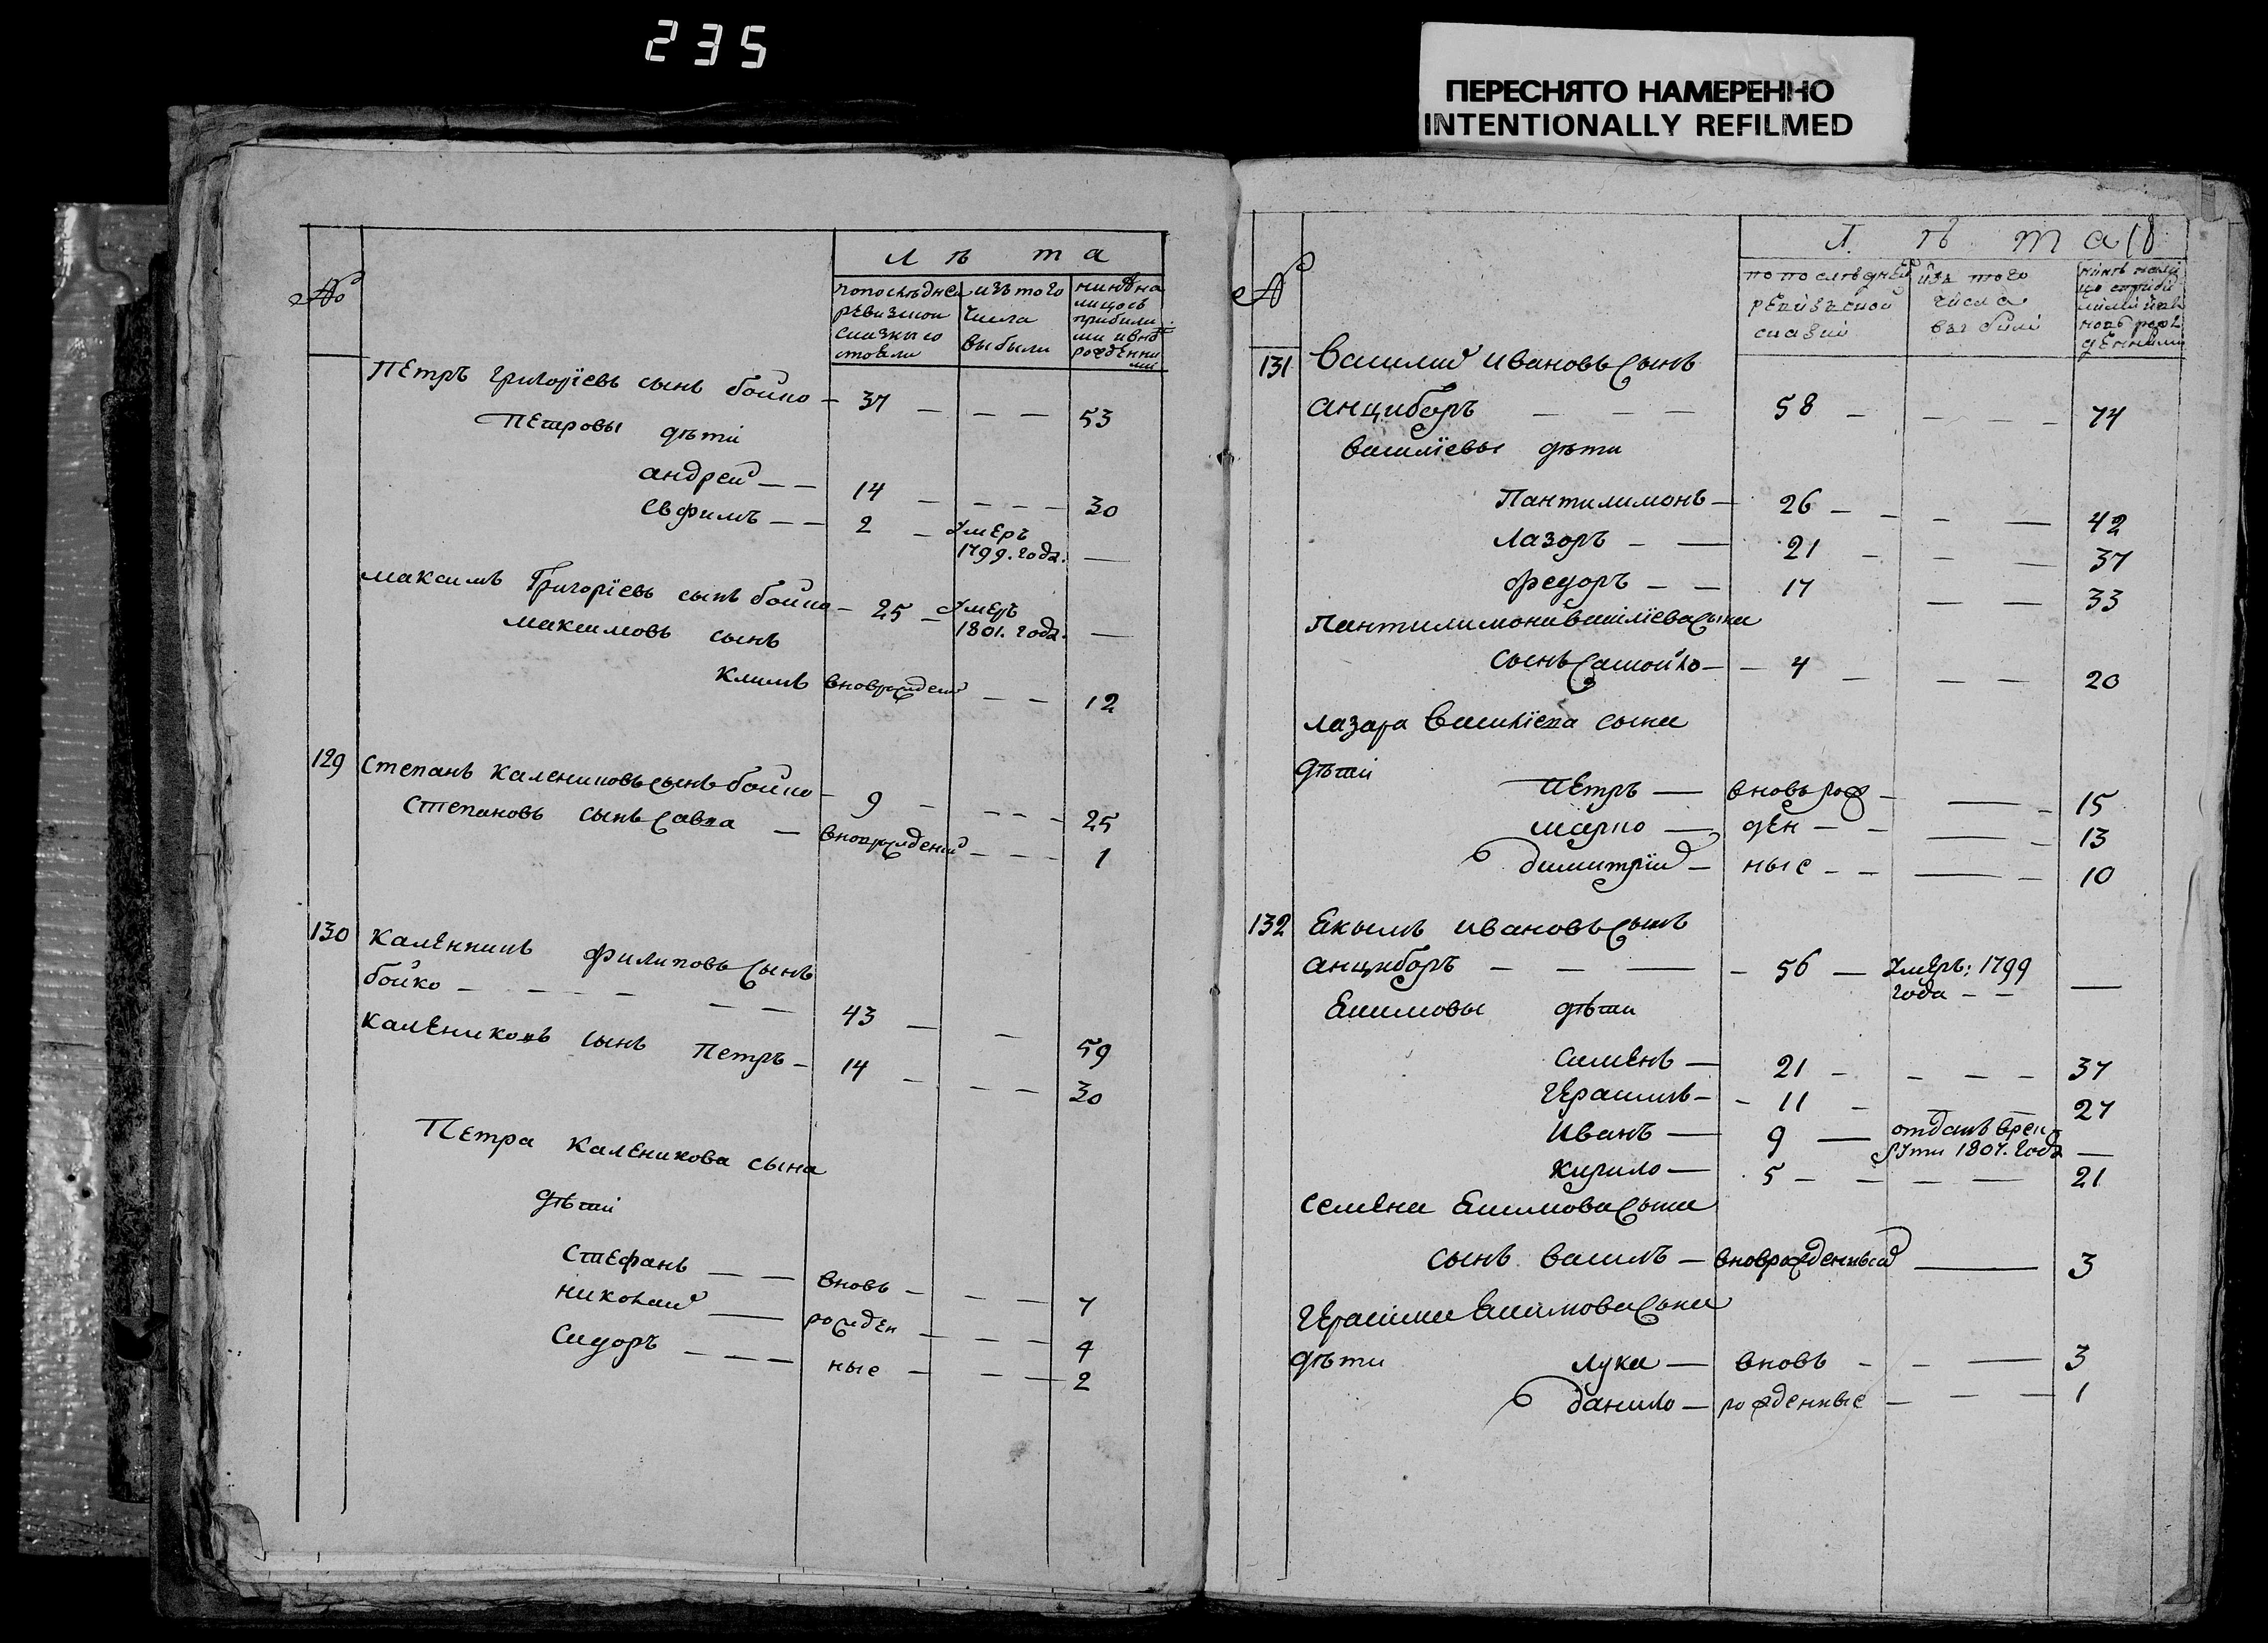 235
ПЕРЕСНЯТО НАМЕРЕННО
INTENTIONALLY REFILMED
№
Лѣта
попослѣдней
ревизской
сказки со
стояли
изъ того
числа
выбыли
нинѣ на
лицось
прибили
ми ивнов
рожденни
ми
Петръ Григорїевъ сынъ бойко — 37 — — — 53
Петровы дѣти
андрей — — 14 — — — — 30
Евфимъ — — 2 — Умеръ
1799. года. —
максимъ Григорїевъ сынъ бойко — 25 — Умеръ
1801. года. —
максимовъ сынъ
Климъ вноврожденій — — 12
129 Степанъ Калениковъ сынъ бойко — 9 — — — — 25
Степановъ сынъ Савка — вноврожденій — — — 1
130 Каленникъ филиповъ сынъ
бойко — — — — — 43 — — 59
Калениковъ сынъ Петръ — 14 — — — 30
Петра Каленикова сына
дѣти
Стефанъ — — вновь — — — — 7
николай — рожден — — — — 4
Сидоръ — — — ные — — — 2
№
Лѣта 18
попослѣдней
ревизской
сказки
изъ того
числа
выбили
131 Василий Ивановъ сынъ
анциборъ — — — 58 — — — — — 74
василїевы дѣти
Пантилимонъ — 26 — — — — 42
Лазоръ — — 21 — — — 37
федоръ — — 17 — — 33
Пантилимона василїева сына
сынъ Самойло — — 4 — — — 20
Лазара василїева сына
дѣти
Петръ — вновь рож — — — 15
марко — ден — — — — 13
димитрїй — ные — — — — 10
132 Екимъ Ивановъ сынъ
анциборъ — — — — 56 — Умеръ: 1799
года — — —
Екимовы дѣти
Сименъ — 21 — — — — 37
Герасимъ — — 11 — — — 27
Иванъ — 9 — отданъ врек
рути 1807. года —
Кирило — 5 — — — — 21
Семена Екимова сына
сынъ василъ — вноврожденный — 3
Герасима Екимова сына
дѣти лука — вновь — — — 3
данило — рожденные — — — 1